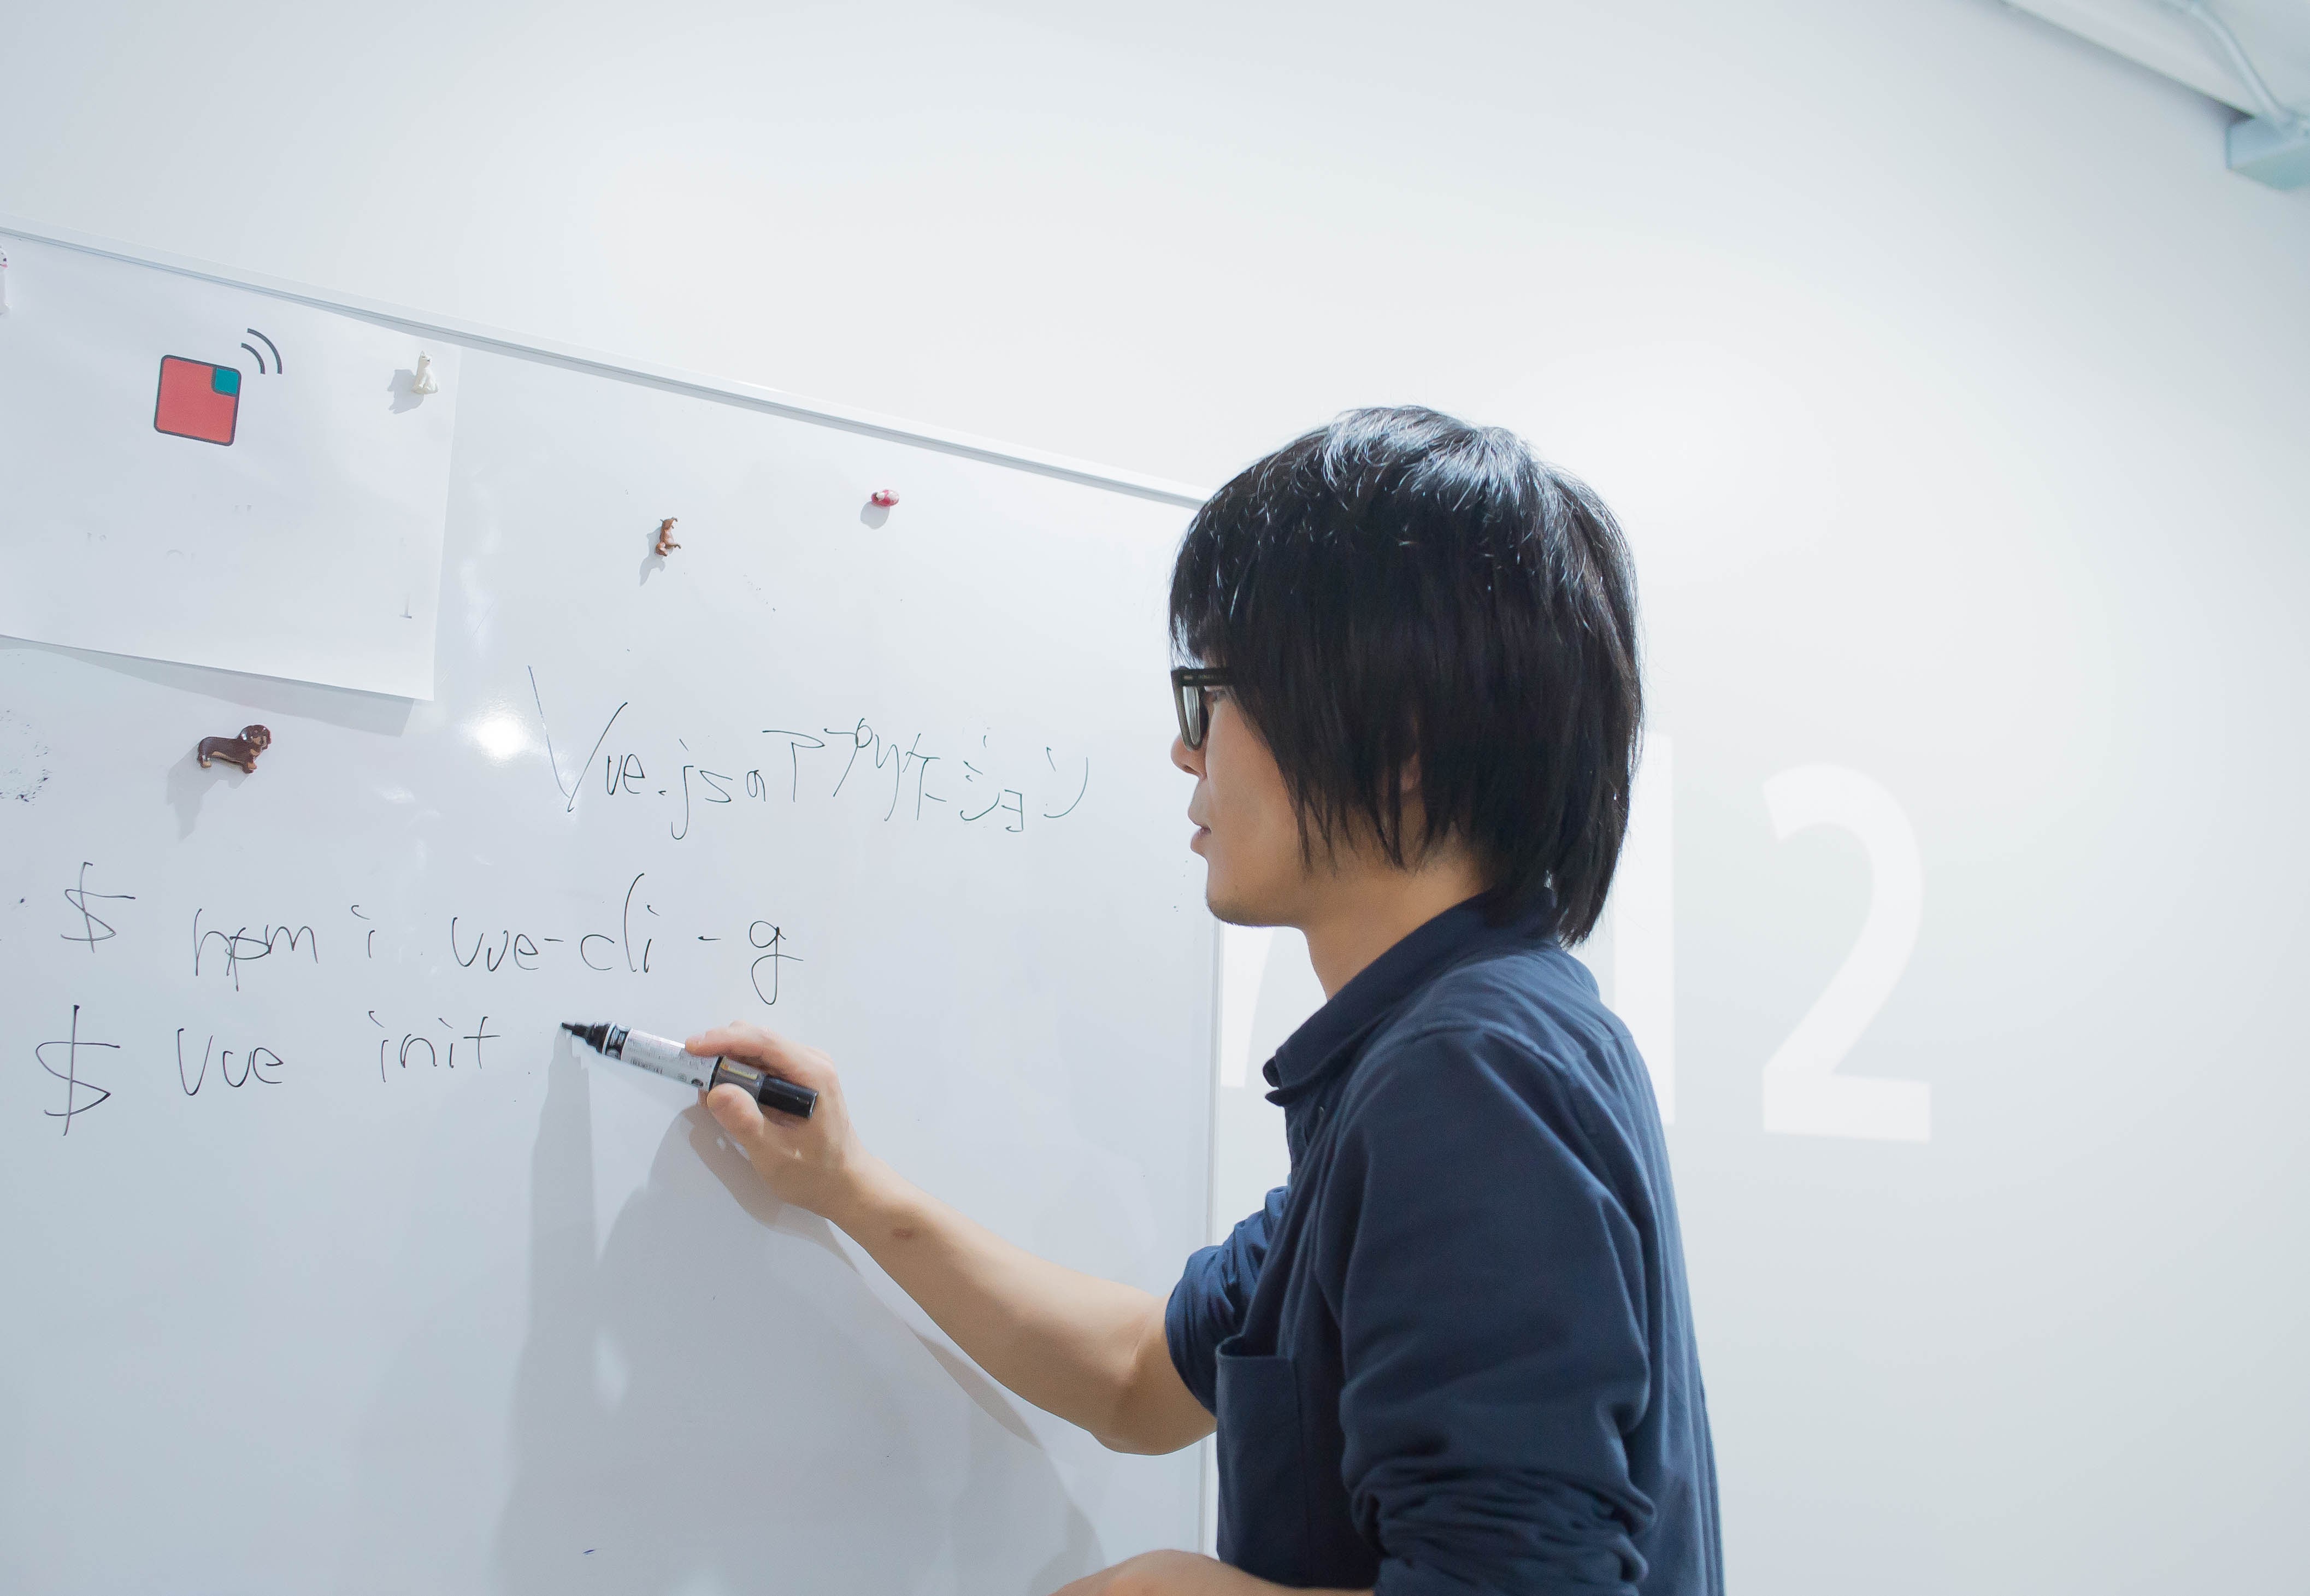 Vue.jsのアプリケーション
$ npm i vue-cli -g
$ vue init
12